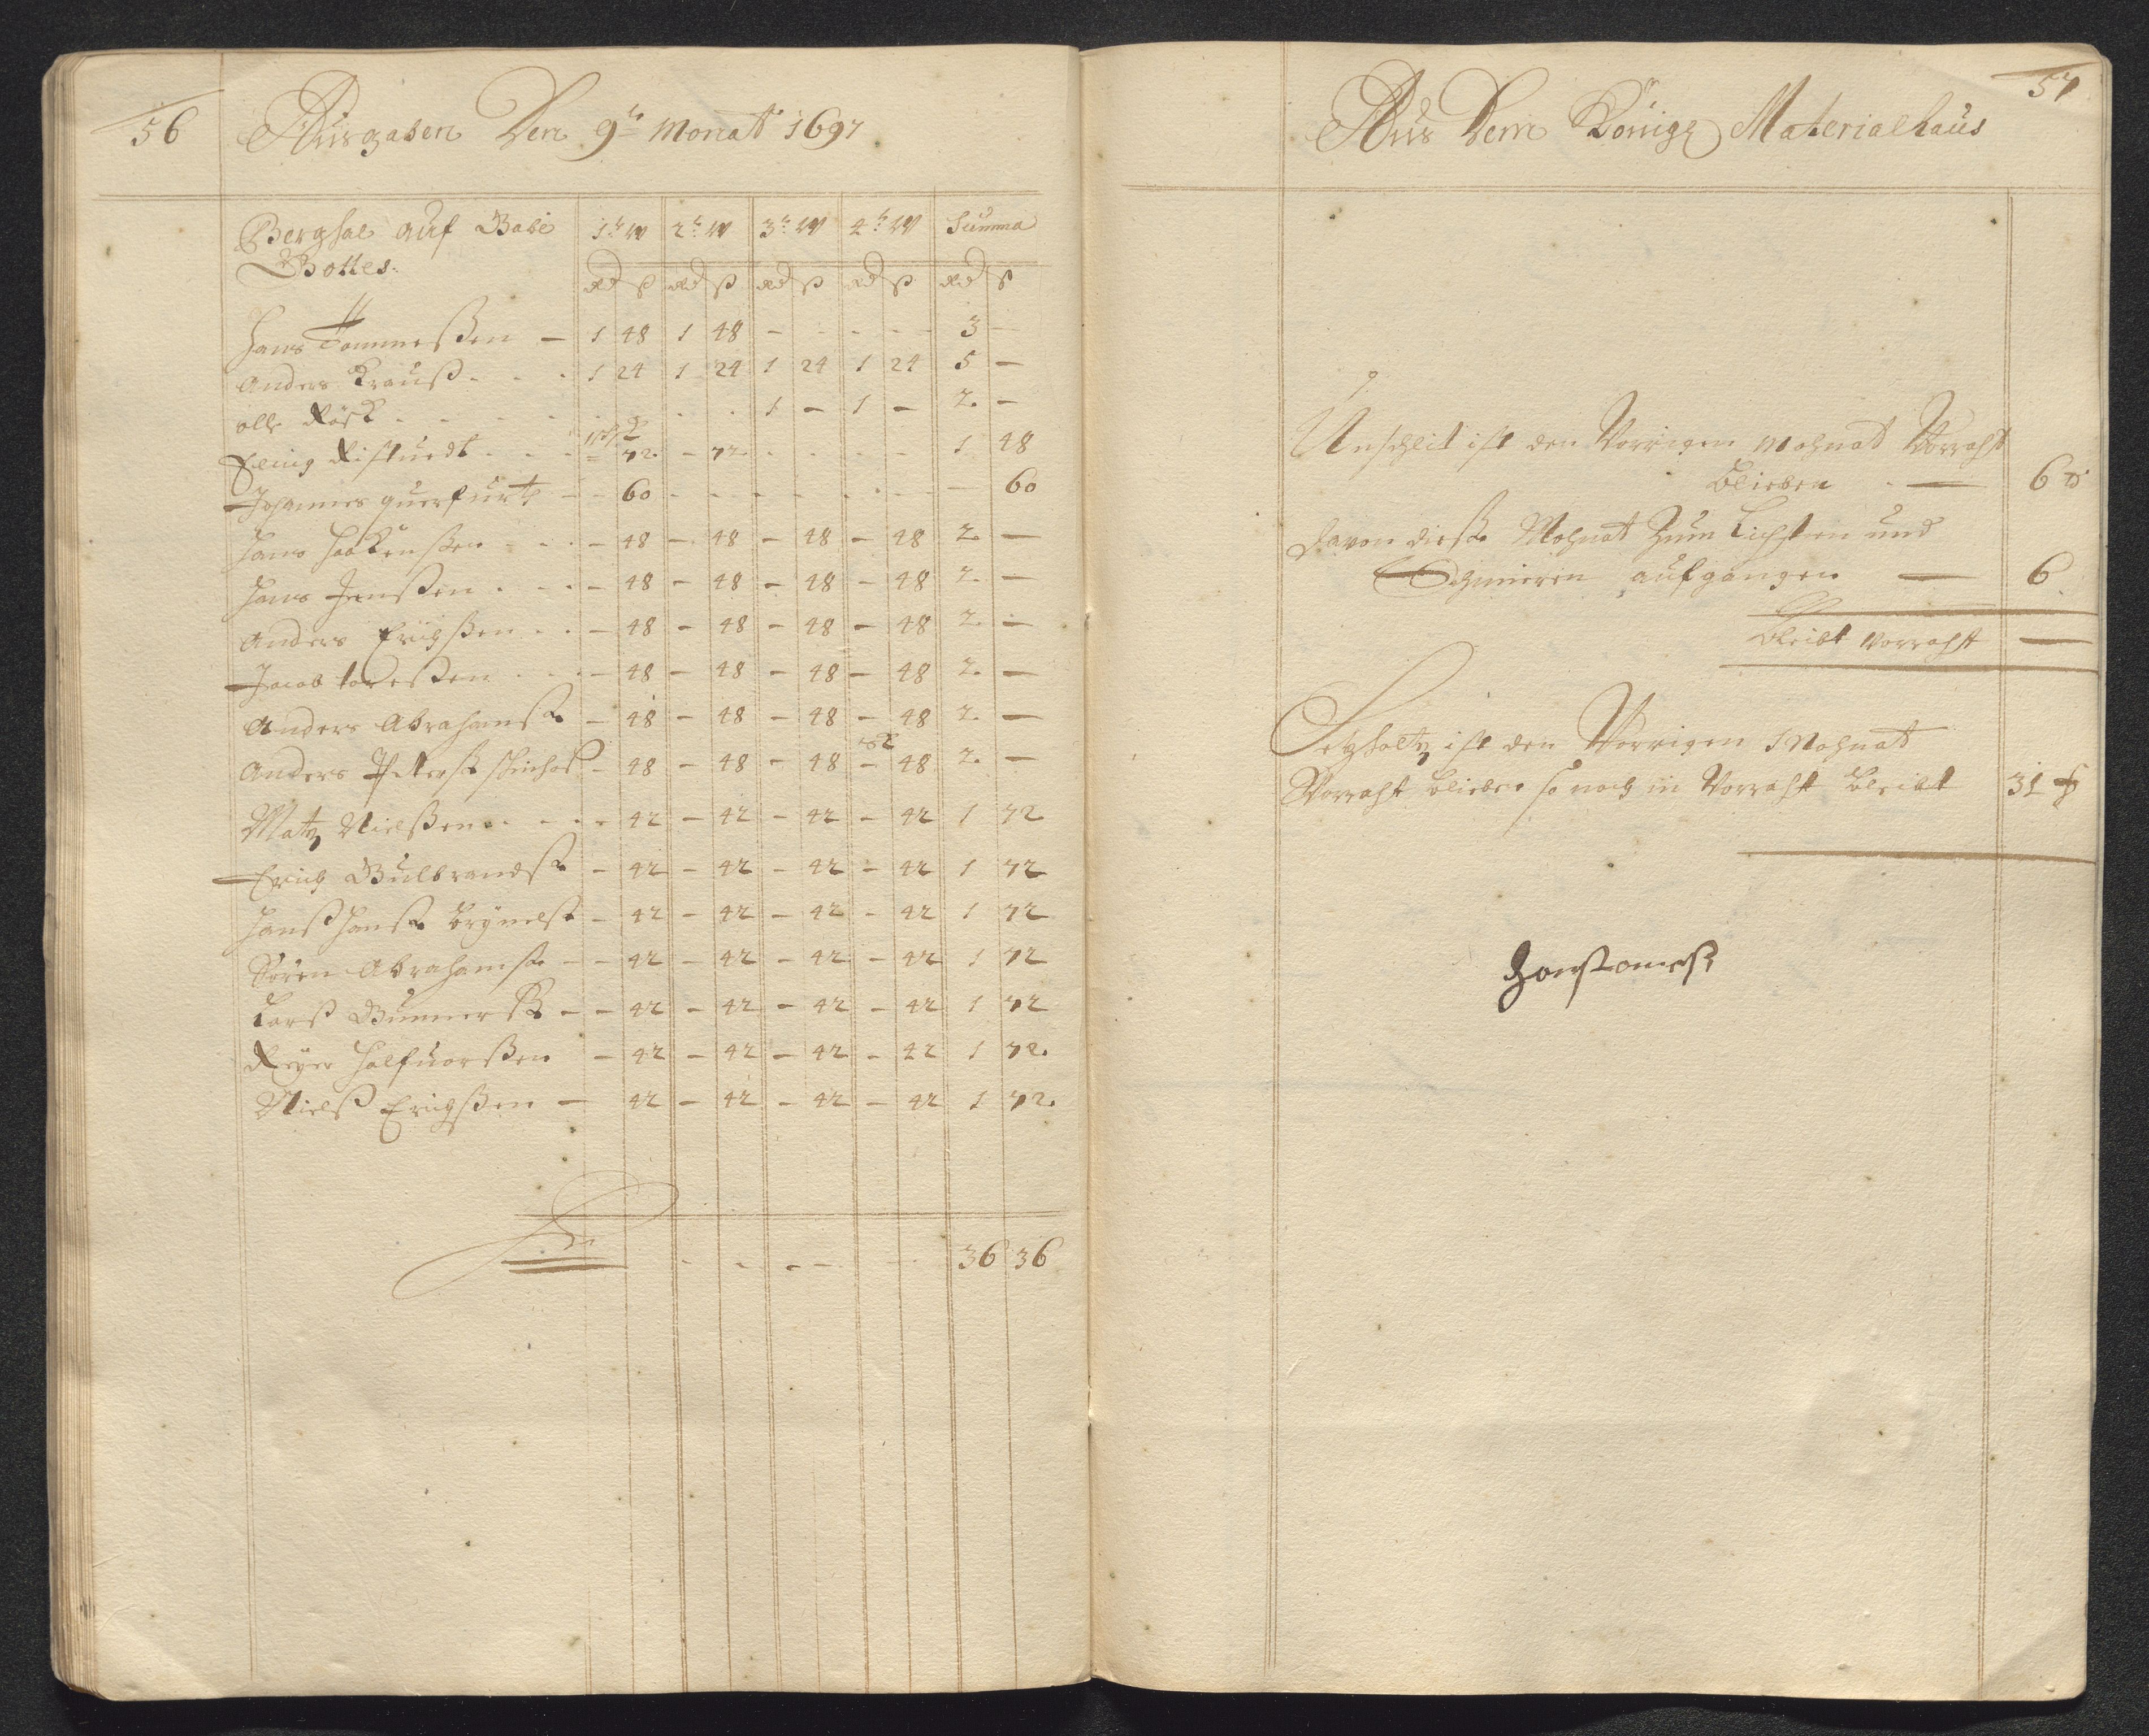 56
Ausgaben Den 9ten Monat 1697
Berghal auf Gabe Gottes.
1te W 2te W 3te W 4te W Summa
Rd ß Rd ß Rd ß Rd ß Rd ß
Hans Tommeßen – 1 48 1 48 – – – – 3 –
Anders Krauß . . . 1 24 1 24 1 24 1 24 5 –
olle Röck . . . . . . . 1 – 1 – 2. –
Eling . . . – 72. – 72 . . . . 1 48
Johannes querfurtt – – 60 – – – – – – – 60
Hans Haakenßen . . – 48 – 48 – 48 – 48 2. –
Hans Jenßen . . . – 48 – 48 – 48 – 48 2. –
Anders Erigßen . . – 48 – 48 – 48 – 48 2. –
Jacob toreßen . . . – 48 – 48 – 48 – 48 2. –
Anders Abrahamß. – 48 – 48 – 48 – 48 2. –
Anders Peterß – 48 – 48 – 48 – 48 2. –
Matz Nielßen . . . – 42 – 42 – 42 – 42 1 72
Erich Gulbrandß – 42 – 42 – 42 – 42 1 72
Hanß Hanß Brynelß – 42 – 42 – 42 – 42 1 72
Sören Abrahamß – – 42 – 42 – 42 – 42 1 72
Larß Gunnerß – – 42 – 42 – 42 – 42 1 72
Reyer Halfuorßen – 42 – 42 – 42 – 42 1 72.
Nielß Erichßen – 42 – 42 – 42 – 42 1 72.
36 36
57
Aus Dem Königl Materialhaus
Unschlit ist den Vorrigen Mohnat Vorraht
blieben . — 6 ℔
Davon dieße Mohnat Zum Lichten und
Schmieren aufgangen — 6.
bleibt Vorraht —
Setzholtz ist den Vorrigen Mohnat
Vorraht blieben so noch in Vorraht bleibt 31
Hanstomesß